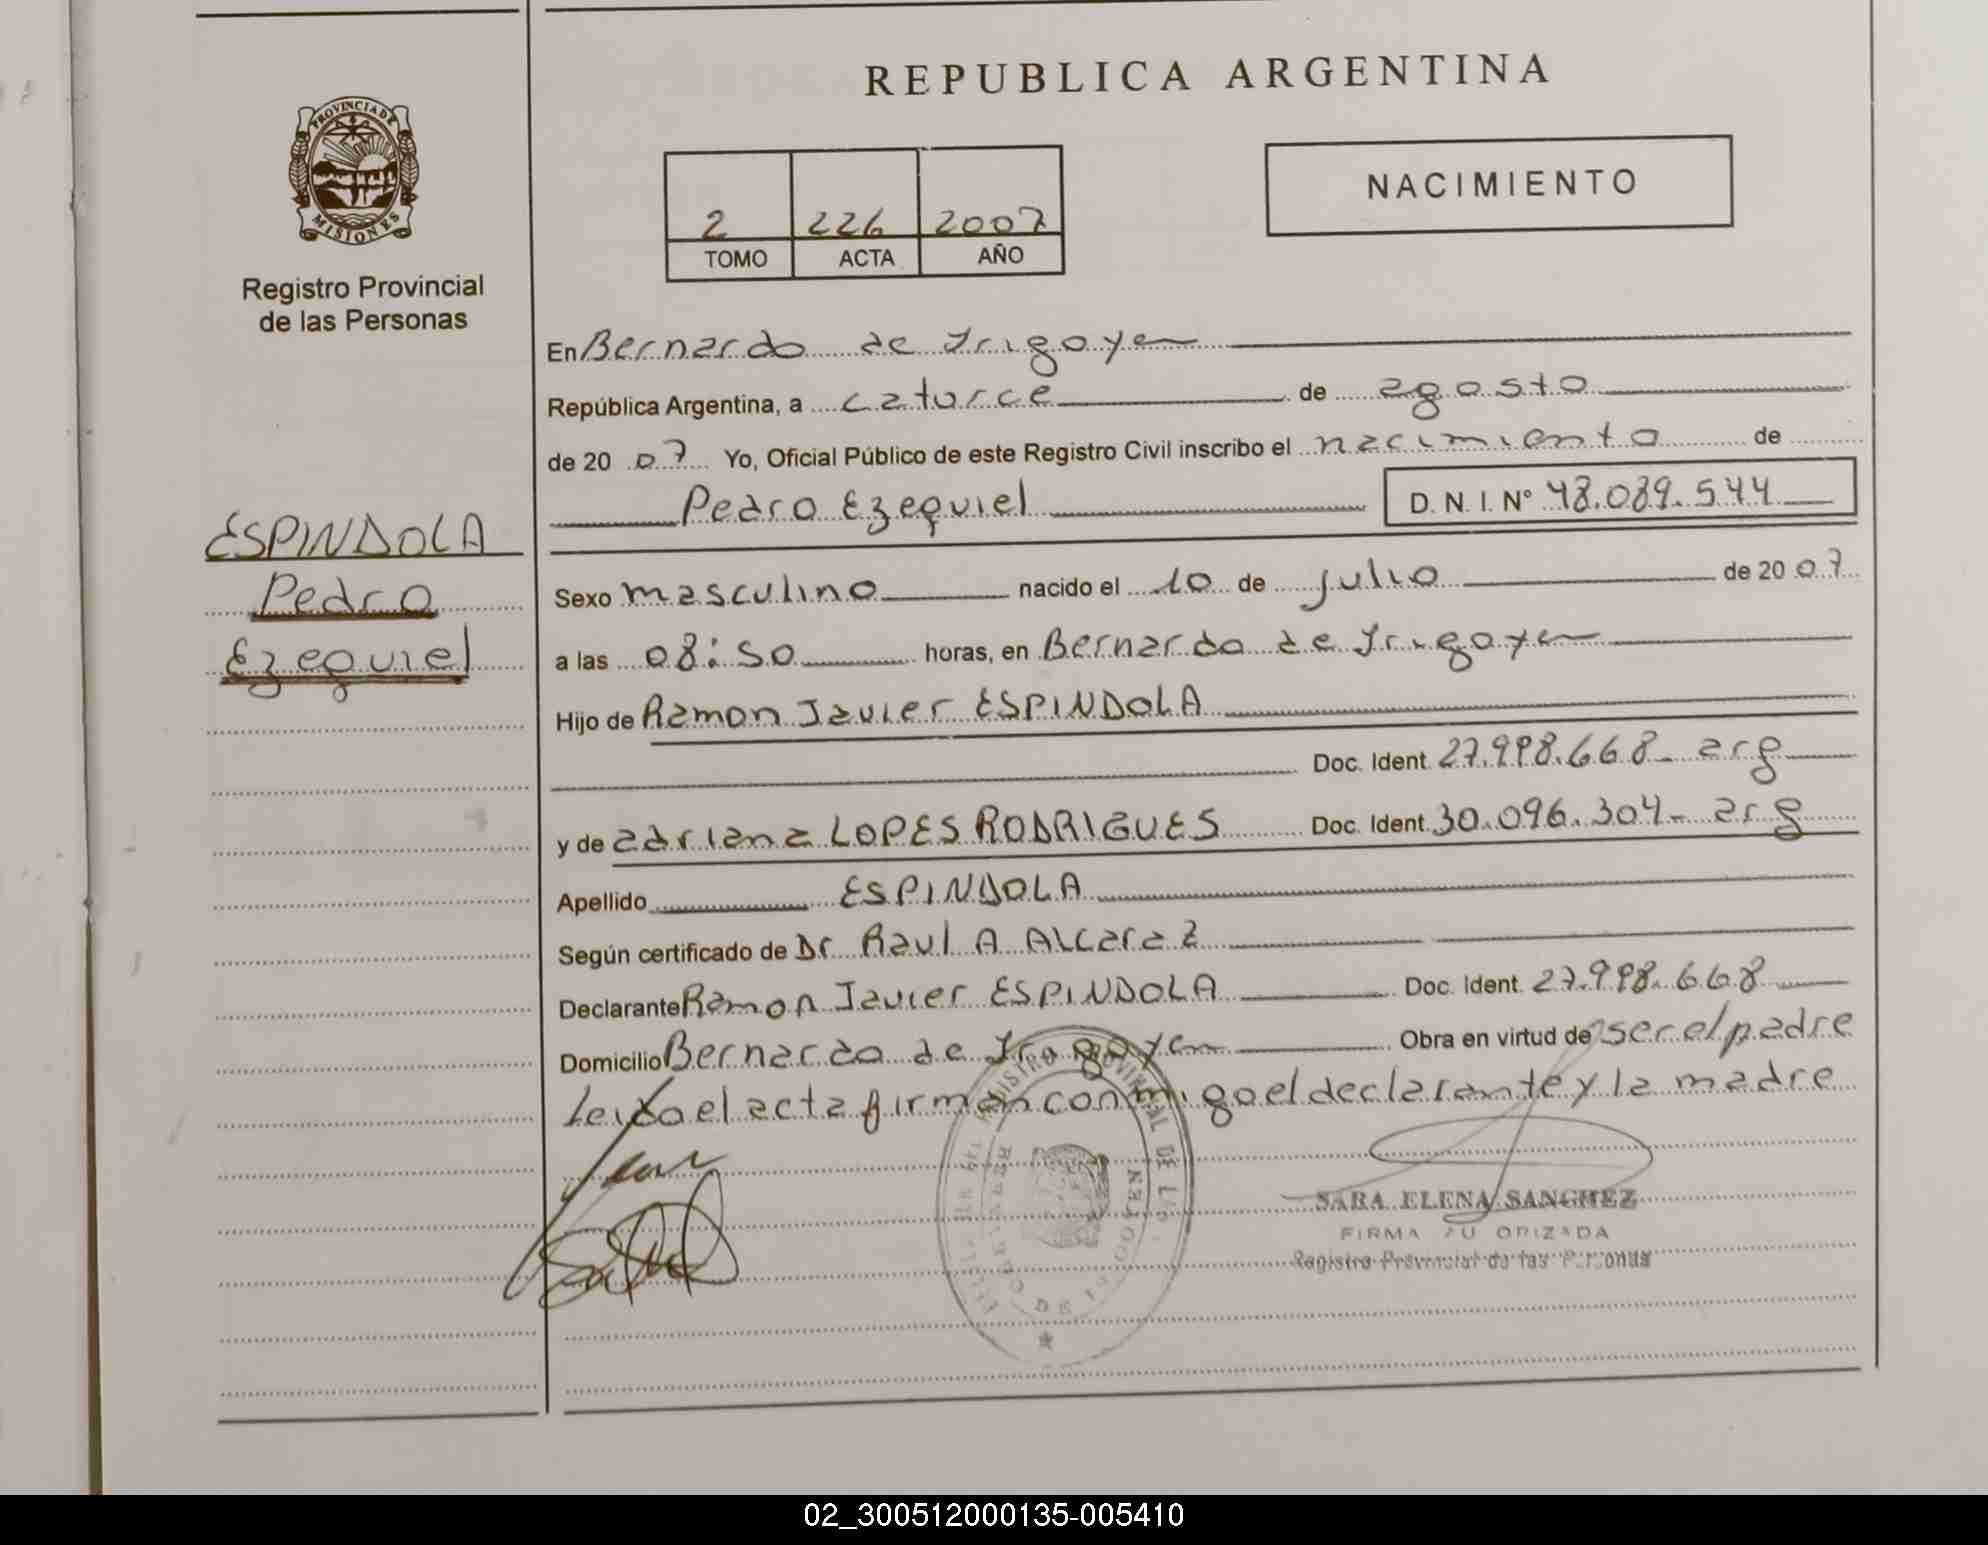 REPUBLICA ARGENTINA
PROVINCIA DE
MISIONES
Registro Provincial
de las Personas
NACIMIENTO
2 226 2007
TOMO ACTA AÑO
En Bernardo de Irigoyen
República Argentina, a catorce de agosto
de 20 07 Yo, Oficial Público de este Registro Civil inscribo el nacimiento de
Pedro Ezequiel D. N. I. Nº 48.089.544
ESPINDOLA
Pedro
Ezequiel
Sexo masculino nacido el 10 de julio de 20 07
a las 08:50 horas, en Bernardo de Irigoyen
Hijo de Ramon Javier ESPINDOLA
Doc. Ident. 27.998.668- arg
y de adriana LOPES RODRIGUES Doc. Ident. 30.096.304- arg
Apellido ESPINDOLA
Según certificado de Dr Raul A Alcaraz
Declarante Ramon Javier ESPINDOLA Doc. Ident. 27.998.668
Domicilio Bernardo de Irigoyen Obra en virtud de ser el padre
Leido el acta firman conmigo el declarante y la madre
SARA ELENA SANCHEZ
FIRMA AUTORIZADA
Registro Provincial de las Personas
02_300512000135-005410